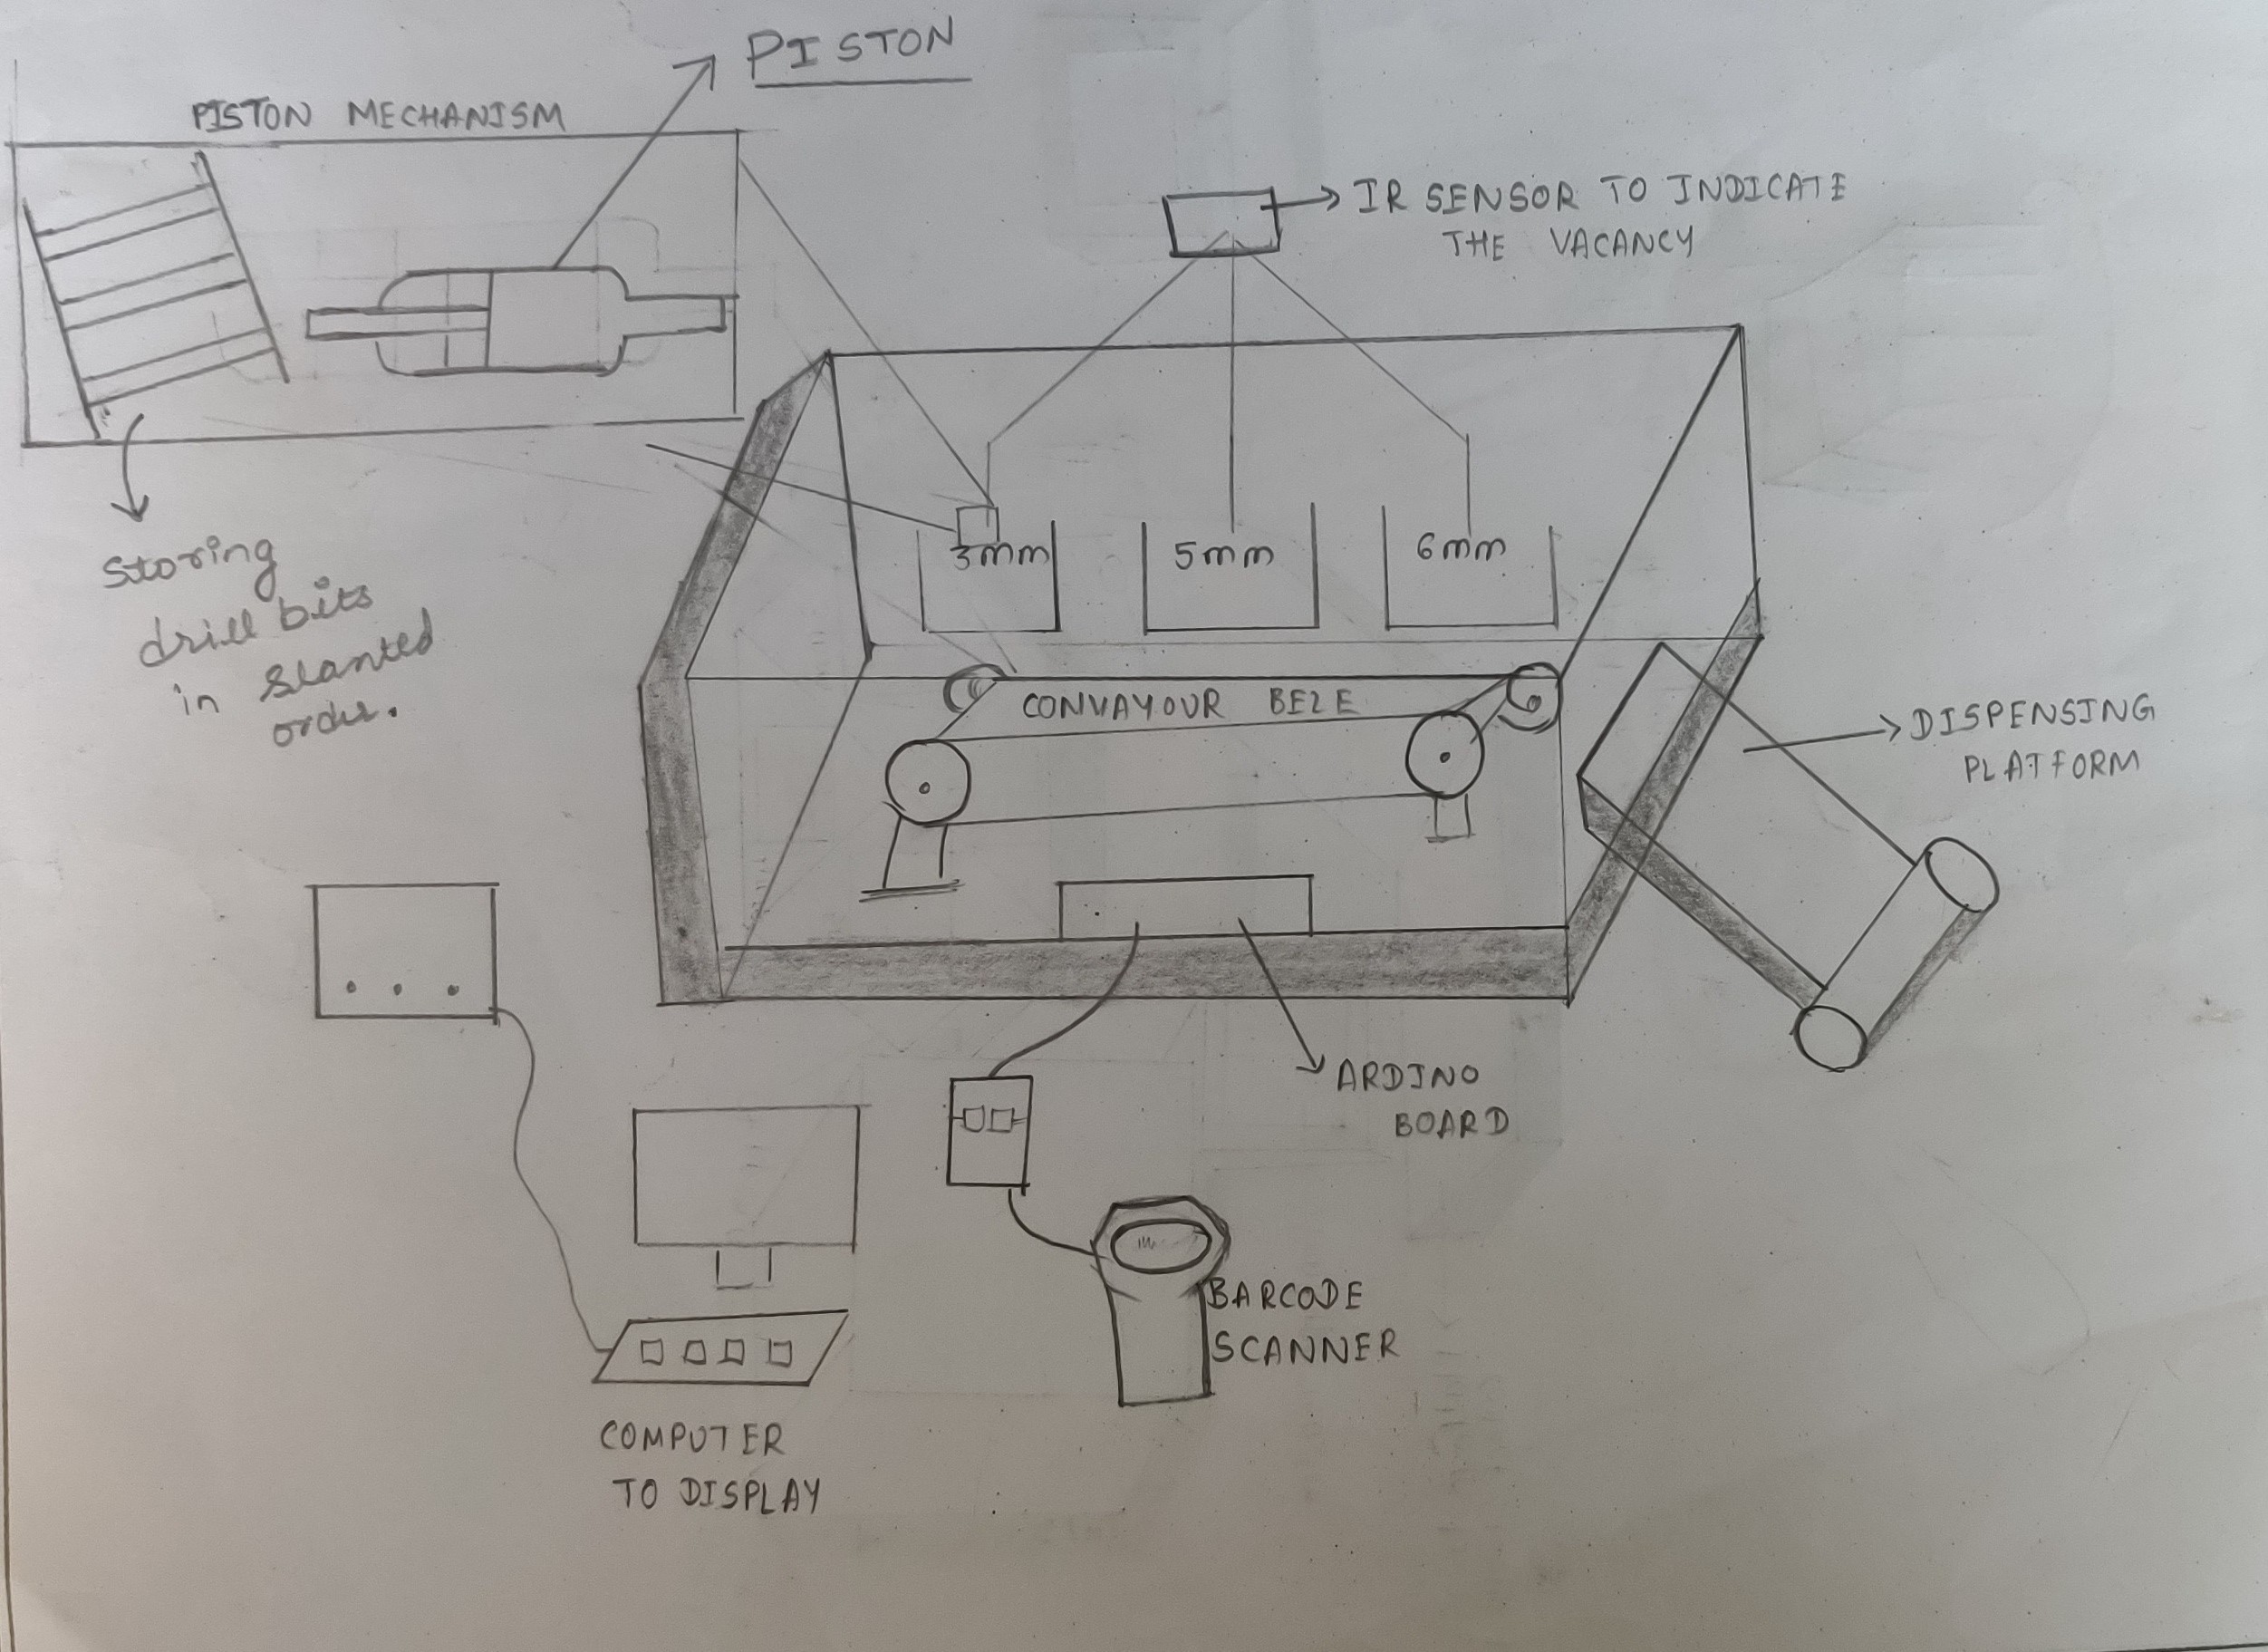 PISTON
PISTON MECHANISM
IR SENSOR TO INDICATE
THE VACANCY
3mm
5mm
6mm
storing
drill bits
in slanted
order.
CONVAYOUR BELE
DISPENSING
PLATFORM
ARDINO
BOARD
BARCODE
SCANNER
COMPUTER
TO DISPLAY